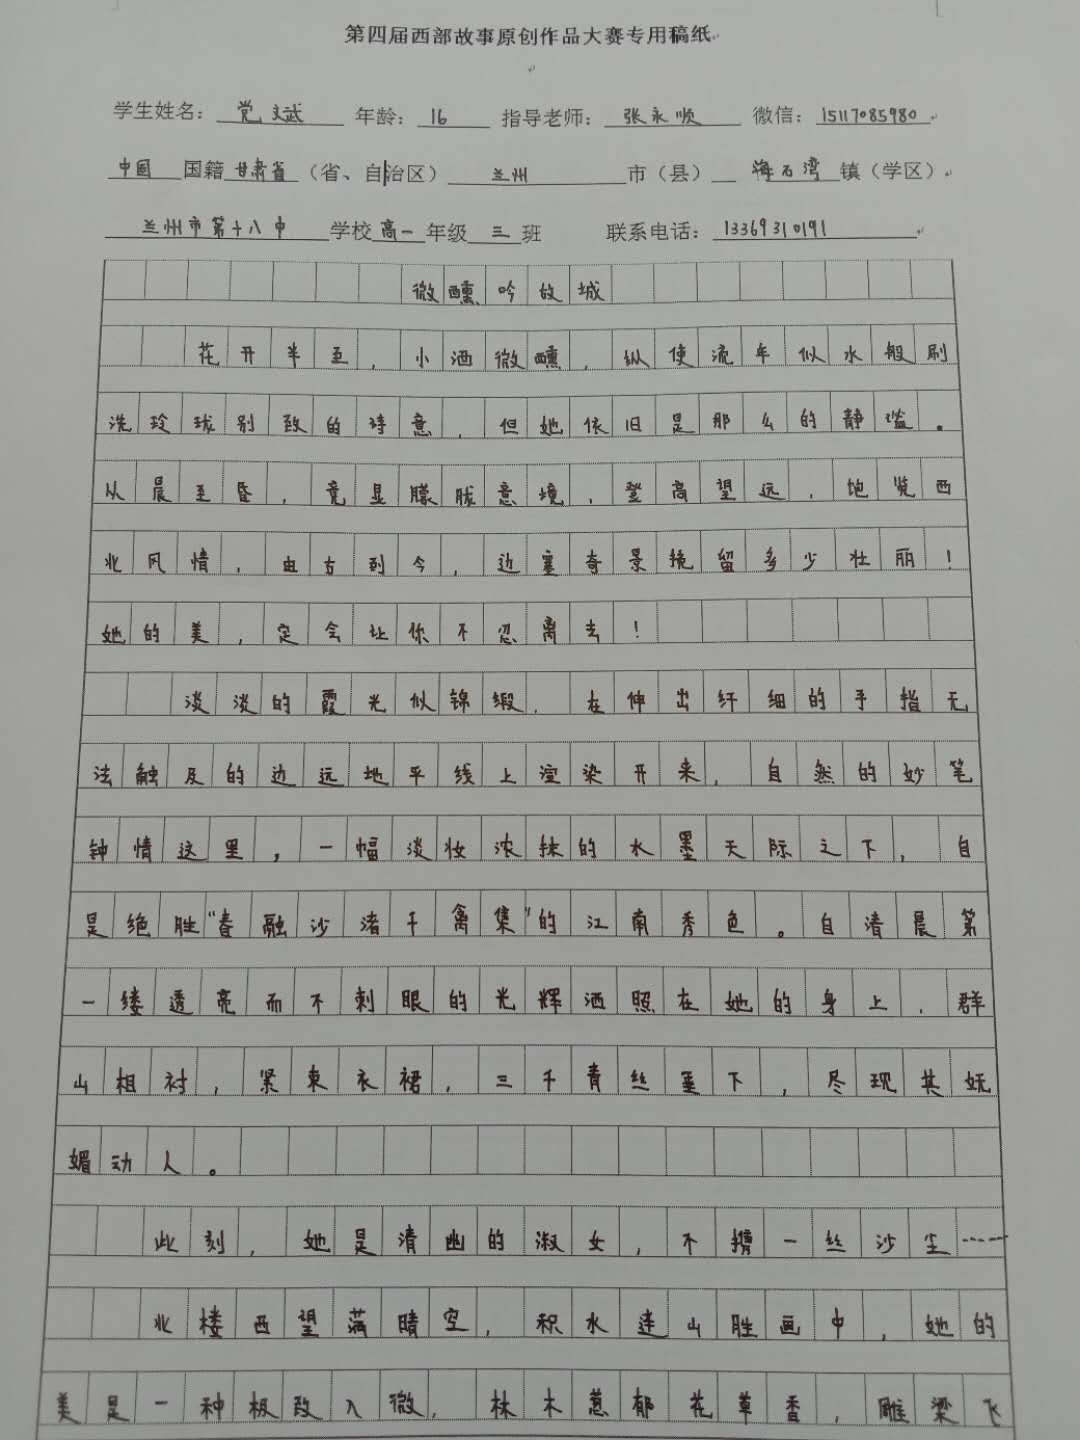 第四届西部故事原创作品大赛专用稿纸
学生姓名：党文斌 年龄：16 指导老师：张永顺 微信：15117085980
中国国籍甘肃省（省、自治区）兰州市（县）海石湾镇（学区）
兰州市第十八中学校高一年级三班 联系电话：13369310191
微醺吟故城
花开半亙，小酒微醺，纵使流年似水般刷
洗玲珑别致的诗意，但她依旧是那么的静谧。
从晨至昏，竟显朦胧意境，登高望远，饱览西
北风情，由古到今，边塞奇景挽留多少壮丽！
她的美，定会让你不忍离去！
淡淡的霞光似锦缎，在伸出纤细的手指无
法触及的边远地平线上渲染开来，自然的妙笔
钟情这里，一幅淡妆浓抹的水墨天际之下，自
是绝胜“春融沙渚千禽集”的江南秀色。自清晨第
一缕透亮而不刺眼的光辉洒照在她的身上，群
山相衬，紧束衣裙，三千青丝垂下，尽现其妩
媚动人。
此刻，她是清幽的淑女，不携一丝沙尘……
北楼西望满晴空，积水连山胜画中，她的
美是一种极致入微，林木葱郁花草香，雕梁飞